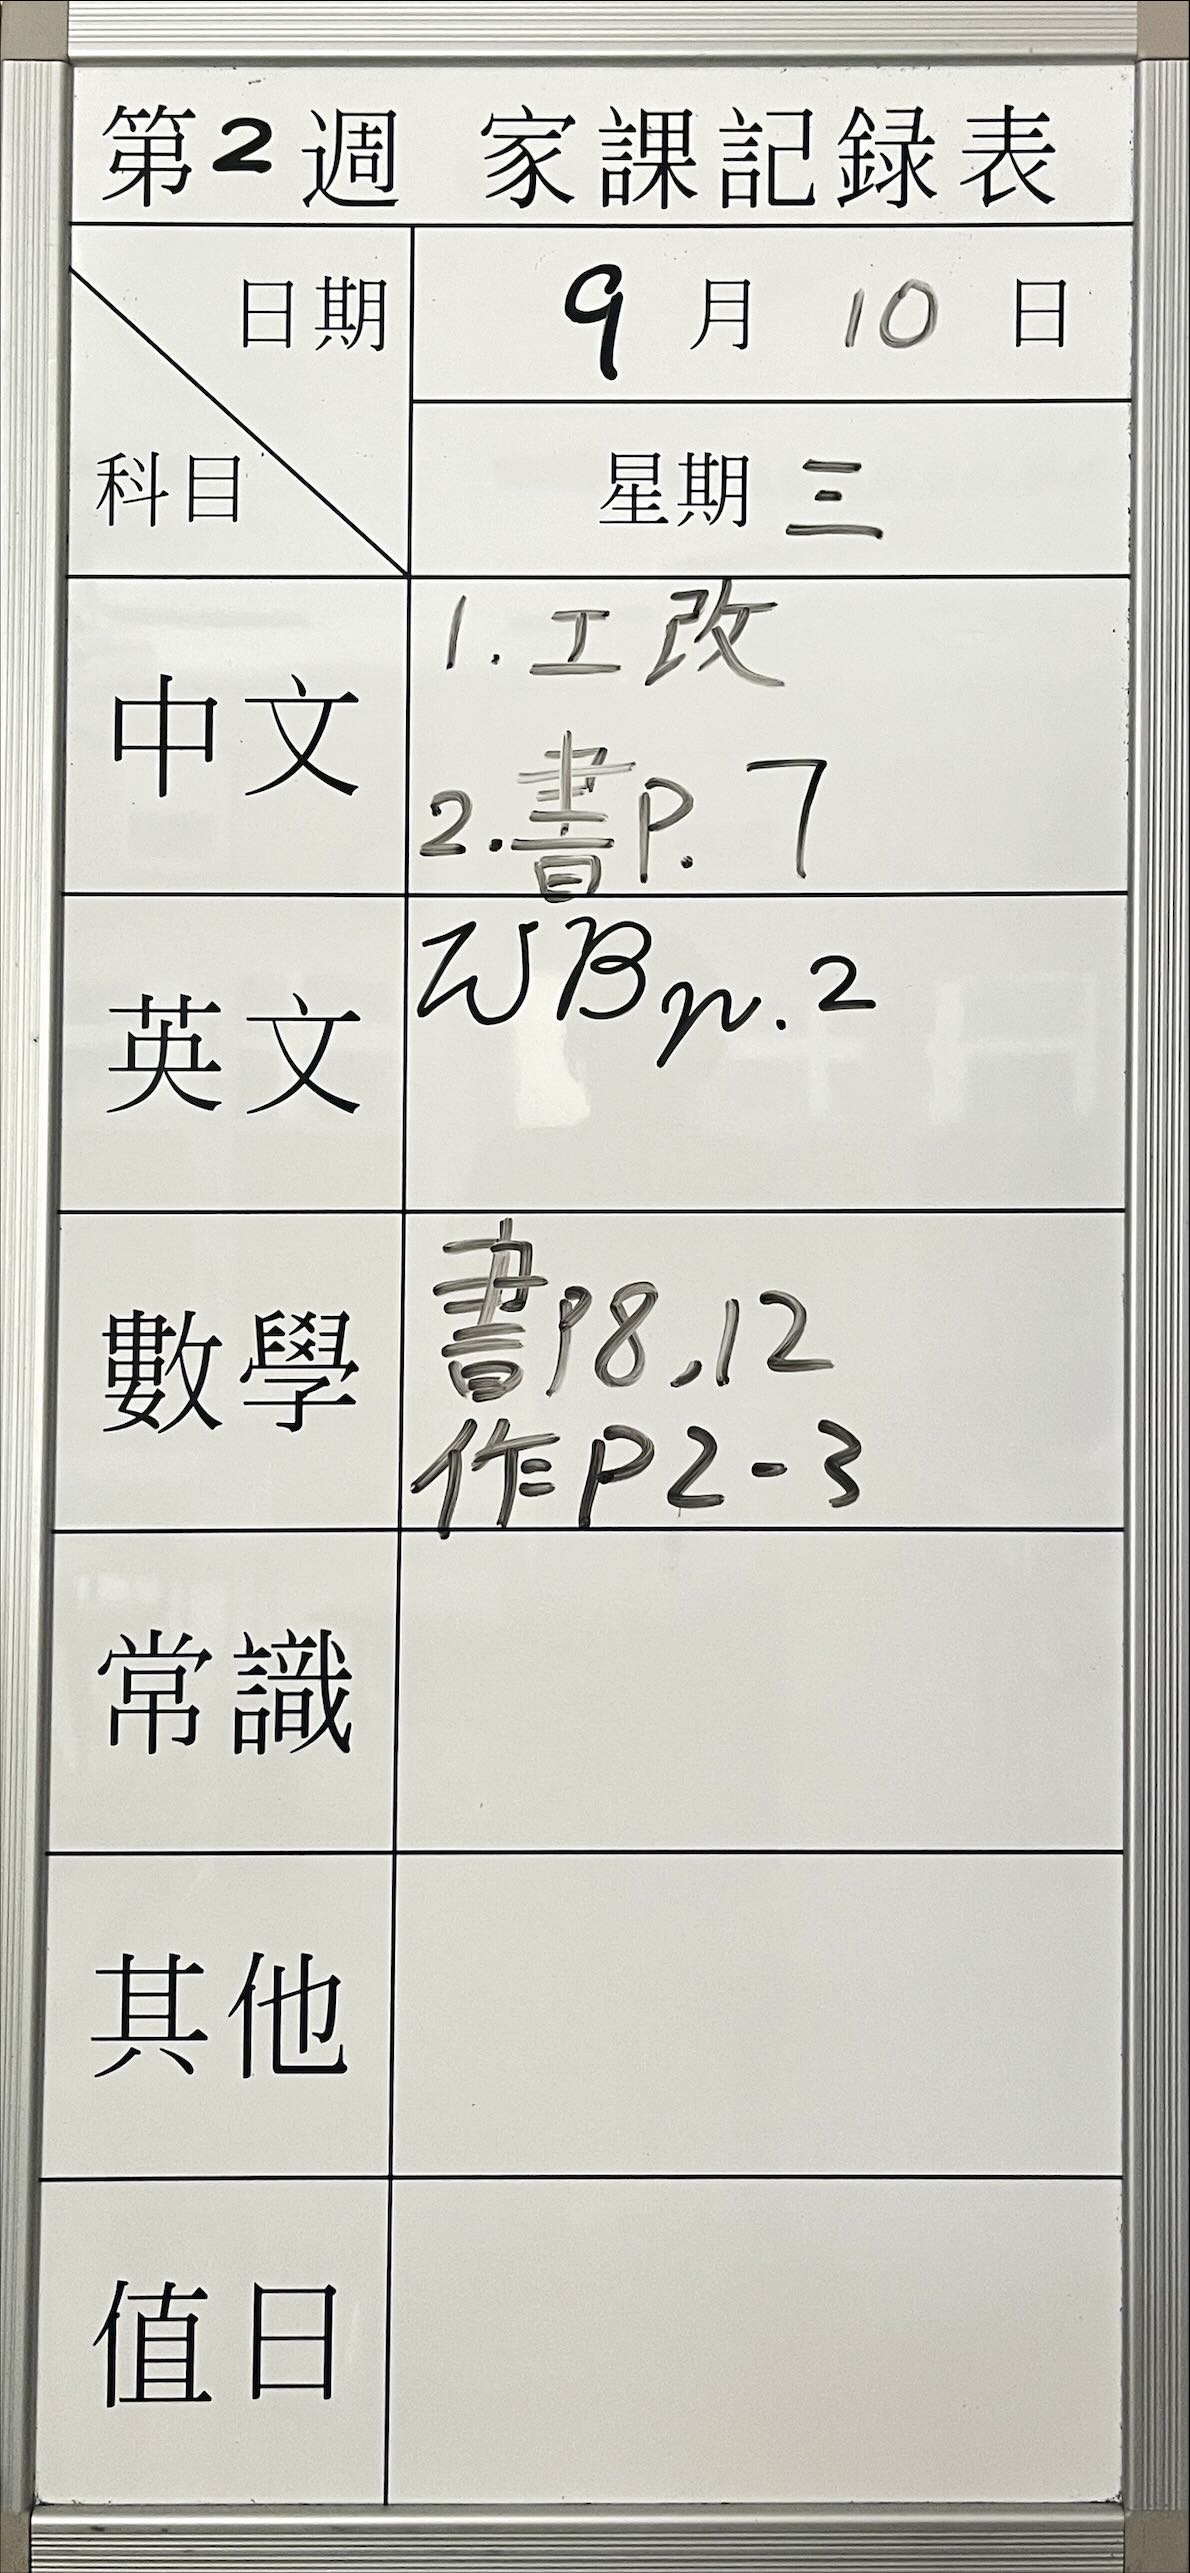 第2週 家課記録表
日期
9月10日
科目
星期三
中文
1.工改
2.書P.7
英文
WB p.2
數學
書P8,12
作P2-3
常識
其他
值日